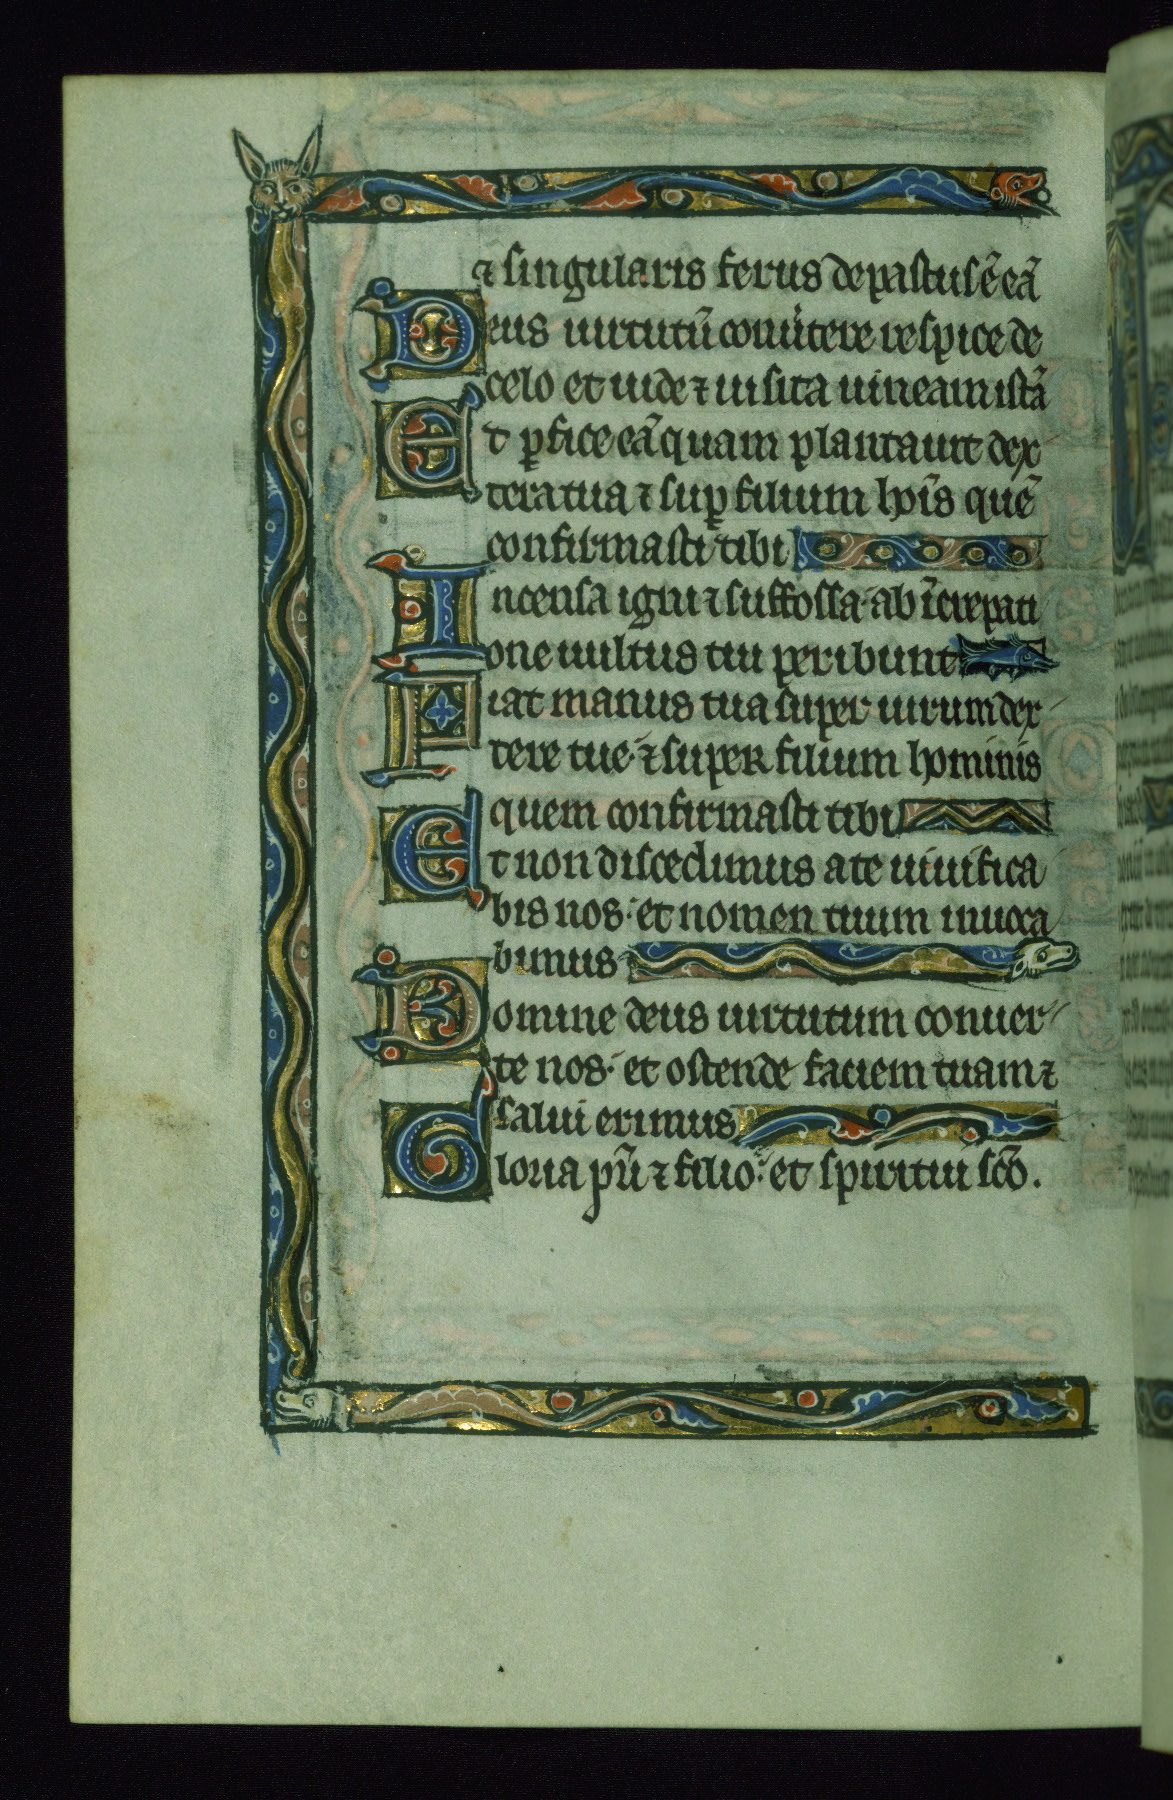 ⁊ singularis ferus depastus ē eā
Deus uirtutū conu̾tere respice de
celo et uide ⁊ uisita uineam istā
Et ꝑfice eā quam plantauit dex
tera tua ⁊ suꝑ filium hoīs quē
confirmasti tibi
Incensa igni ⁊ suffossa· ab īcrepati
one uultus tui peribunt
Fiat manus tua super uirum dex
tere tue· ⁊ super filium hominis
quem confirmasti tibi
Et non discedimus a te uiuifica
bis nos· et nomen tuum inuoca
bimus
Domine deus uirtutum conuer
te nos· et ostende faciem tuam ⁊
salui erimus
Gloria pr̄i ⁊ filio· et spiritui sc̄o.